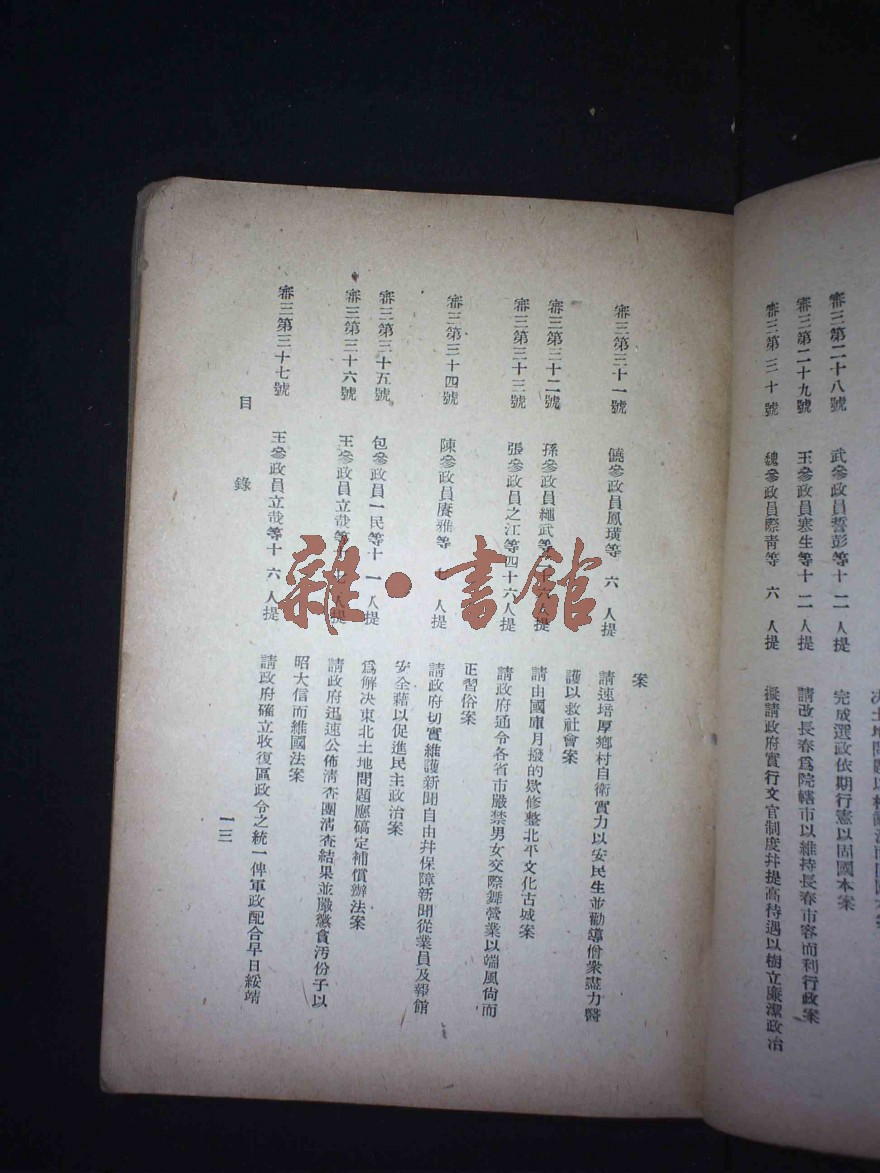 完成選政依期行憲以固國本案
審三第二十八號 武參政員誓彭等十二人提
審三第二十九號 王參政員寒生等十二人提 請改長春爲院轄市以維持長春市容而利行政案
審三第三十號 魏參政員際青等六人提 擬請政府實行文官制度幷提高待遇以樹立廉潔政治
案
審三第三十一號 參政員鳳璜等六人提 請速培厚鄉村自衛實力以安民生並勸導僧衆盡力醫
護以救社會案
審三第三十二號 孫參政員繩武等 人提 請由國庫月撥的欵修整北平文化古城案
審三第三十三號 張參政員之江等四十六人提 請政府通令各省市嚴禁男女交際舞營業以端風尙而
正習俗案
審三第三十四號 陳參政員賡雅等 人提 請政府切實維護新聞自由幷保障新聞從業員及報館
安全藉以促進民主政治案
審三第三十五號 包參政員一民等十一人提 爲解決東北土地問題應確定補償辦法案
審三第三十六號 王參政員立哉等 人提 請政府迅速公佈淸查團淸查結果並嚴懲貪汚份子以
昭大信而維國法案
審三第三十七號 王參政員立哉等十六人提 請政府確立收復區政令之統一俾軍政配合早日綏靖
目錄
一三
雜·書館